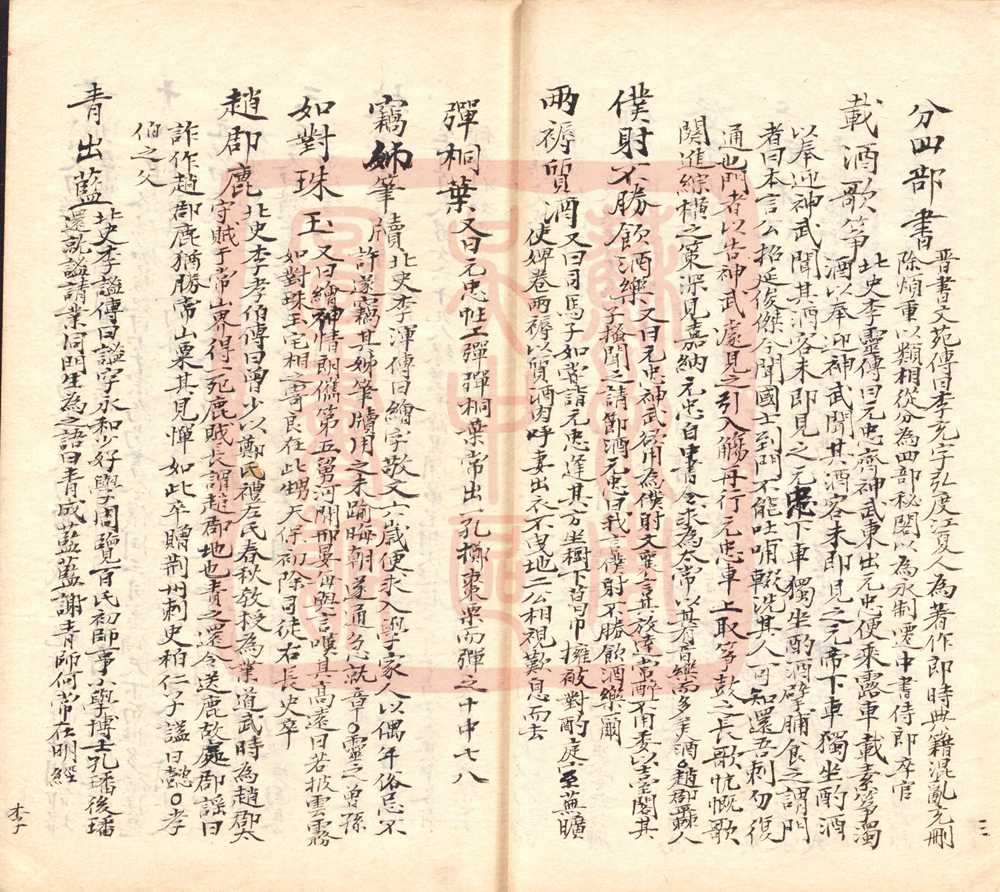 分四部書 晉書文苑傳曰李充字弘度江夏人為著作即時典籍混亂充刪
除煩重以類相從分為四部秘閣以為永制遷中書侍郎卒官
載酒歌箏 北史李靈傳曰元忠齊神武東出元忠便乘露車載素箏濁
酒以奉迎神武聞其酒客未即見之元帝下車獨坐酌酒
以奉迎神武聞其酒客未即見之元忠下車獨坐酌酒擘脯食之謂門
者曰本言公招延俊傑今聞國士到門不能吐哺輟洗其人可知還吾刺勿復
通也門者以告神武處見之引入觴再行元忠車上取箏鼓之長歌慷慨歌
闋進縱橫之策深見嘉納元忠自中書令求為太常以其有音樂而多美酒○趙郡蠡人
僕射不勝飲酒樂 又曰元忠神武欲用為僕射文襄言其放達常醉不可委以臺閣其
子搔聞之請節酒元忠曰我言僕射不勝飲酒樂爾
兩褥質酒 又曰司馬子如嘗詣元忠逢其方坐樹下葛巾擁被對酌庭室蕪曠
使婢卷兩褥以質酒肉呼妻出衣不曳地二公相視歎息而去
彈桐葉 又曰元忠帖工彈彈桐葉常出一孔擲棗栗而彈之十中七八
竊姊筆牘 北史李渾傳曰繪字敬文六歲便求入學家人以偶年俗忌不
許遂竊其姊筆牘用之未踰晦朔遂通急就章○靈之曾孫
如對珠玉 又曰繪神情朗儁第五舅河間邢晏每與言嘆其高遠曰若披雲霧
如對珠玉宅相之寄良在此甥天保初除司徒右長史卒
趙郡鹿 北史李孝伯傳曰曾少以鄭氏禮左氏春秋教授為業道武時為趙郡太
守賊于常山界得一死鹿賊長謂趙郡地也責之還令送鹿故處郡謠曰
詐作趙郡鹿猶勝常山粟其見憚如此卒贈荆州刺史柏仁子謚曰懿○孝
伯之父
青出藍 北史李謐傳曰謐字永和少好學周覽百氏初師事小學博士孔璠後璠
還就謐請業同門生為之語曰青成藍藍謝青師何常在明經
三
李